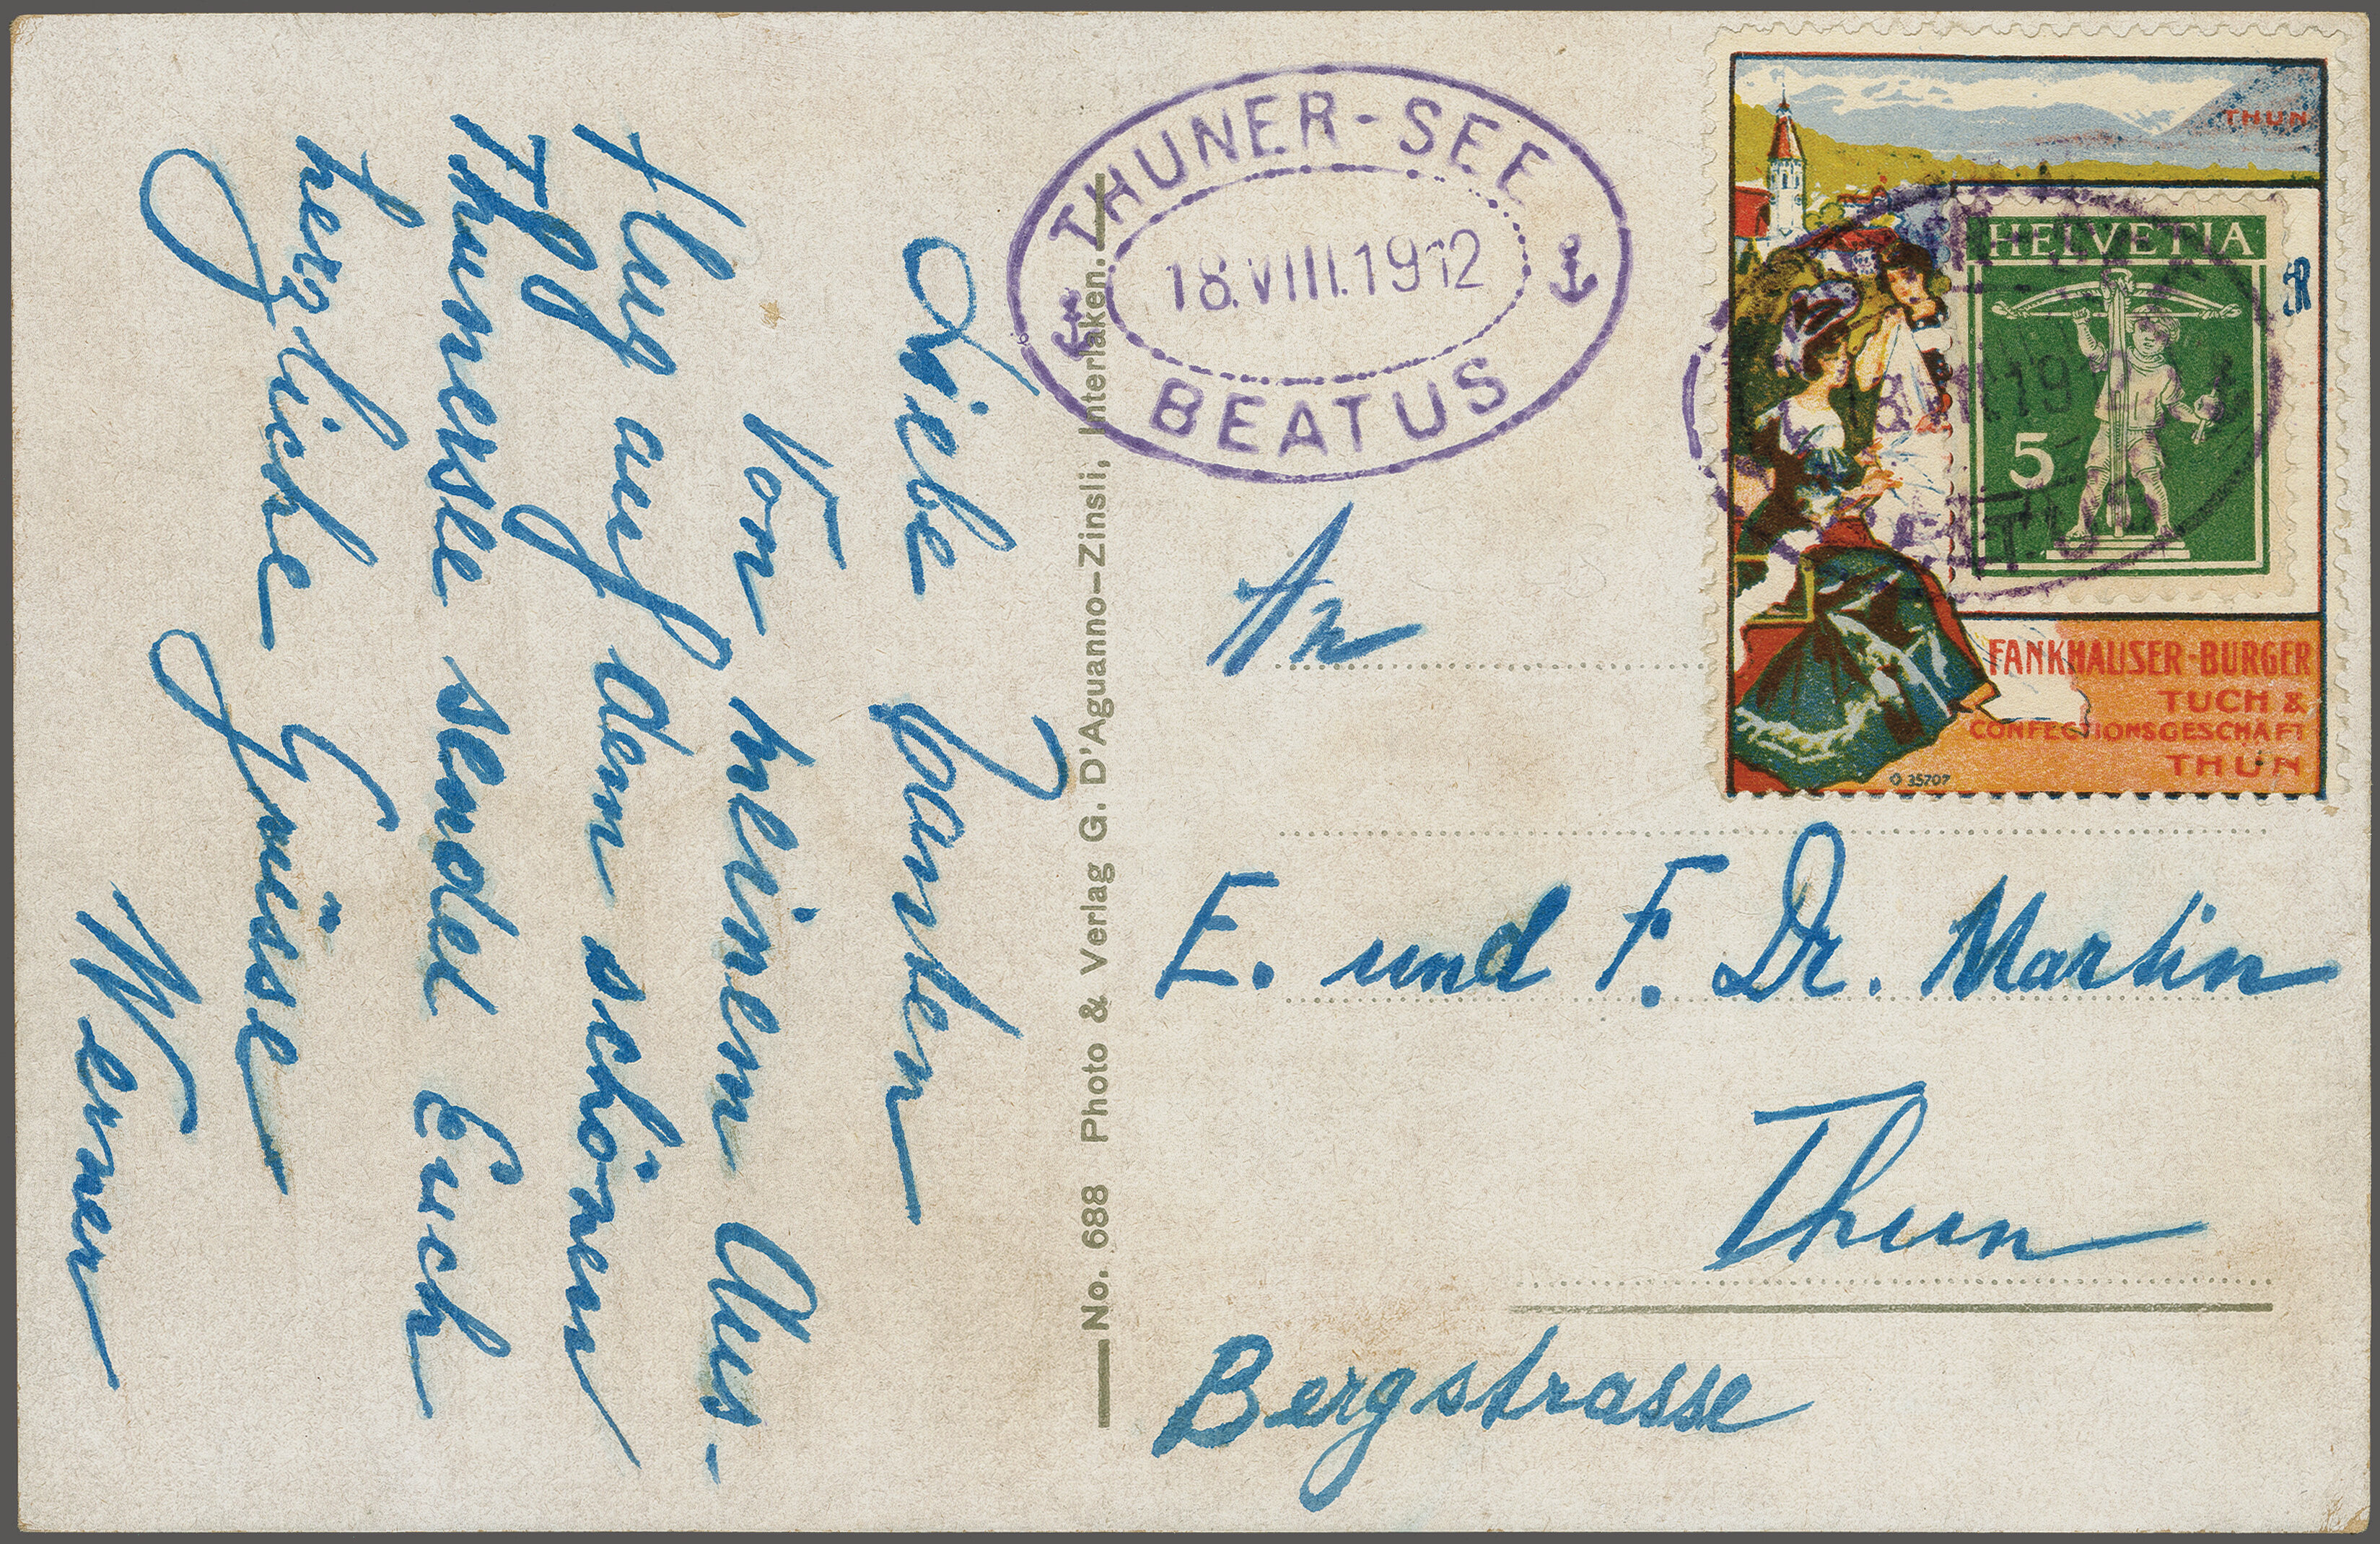 Liebe Tanten
Von meinem Aus-
flug auf dem schönen
Thunersee sendet Euch
herzliche Grüsse
Werner
No. 688 Photo & Verlag G. D'Aguanno-Zinsli, Interlaken.
THUNER-SEE
18.VIII.1912
BEATUS
THUN
HELVETIA
5
FANKHAUSER-BURGER
TUCH &
CONFECTIONSGESCHÄFT
THUN
35707
An
E. und F. Dr. Martin
Thun
Bergstrasse